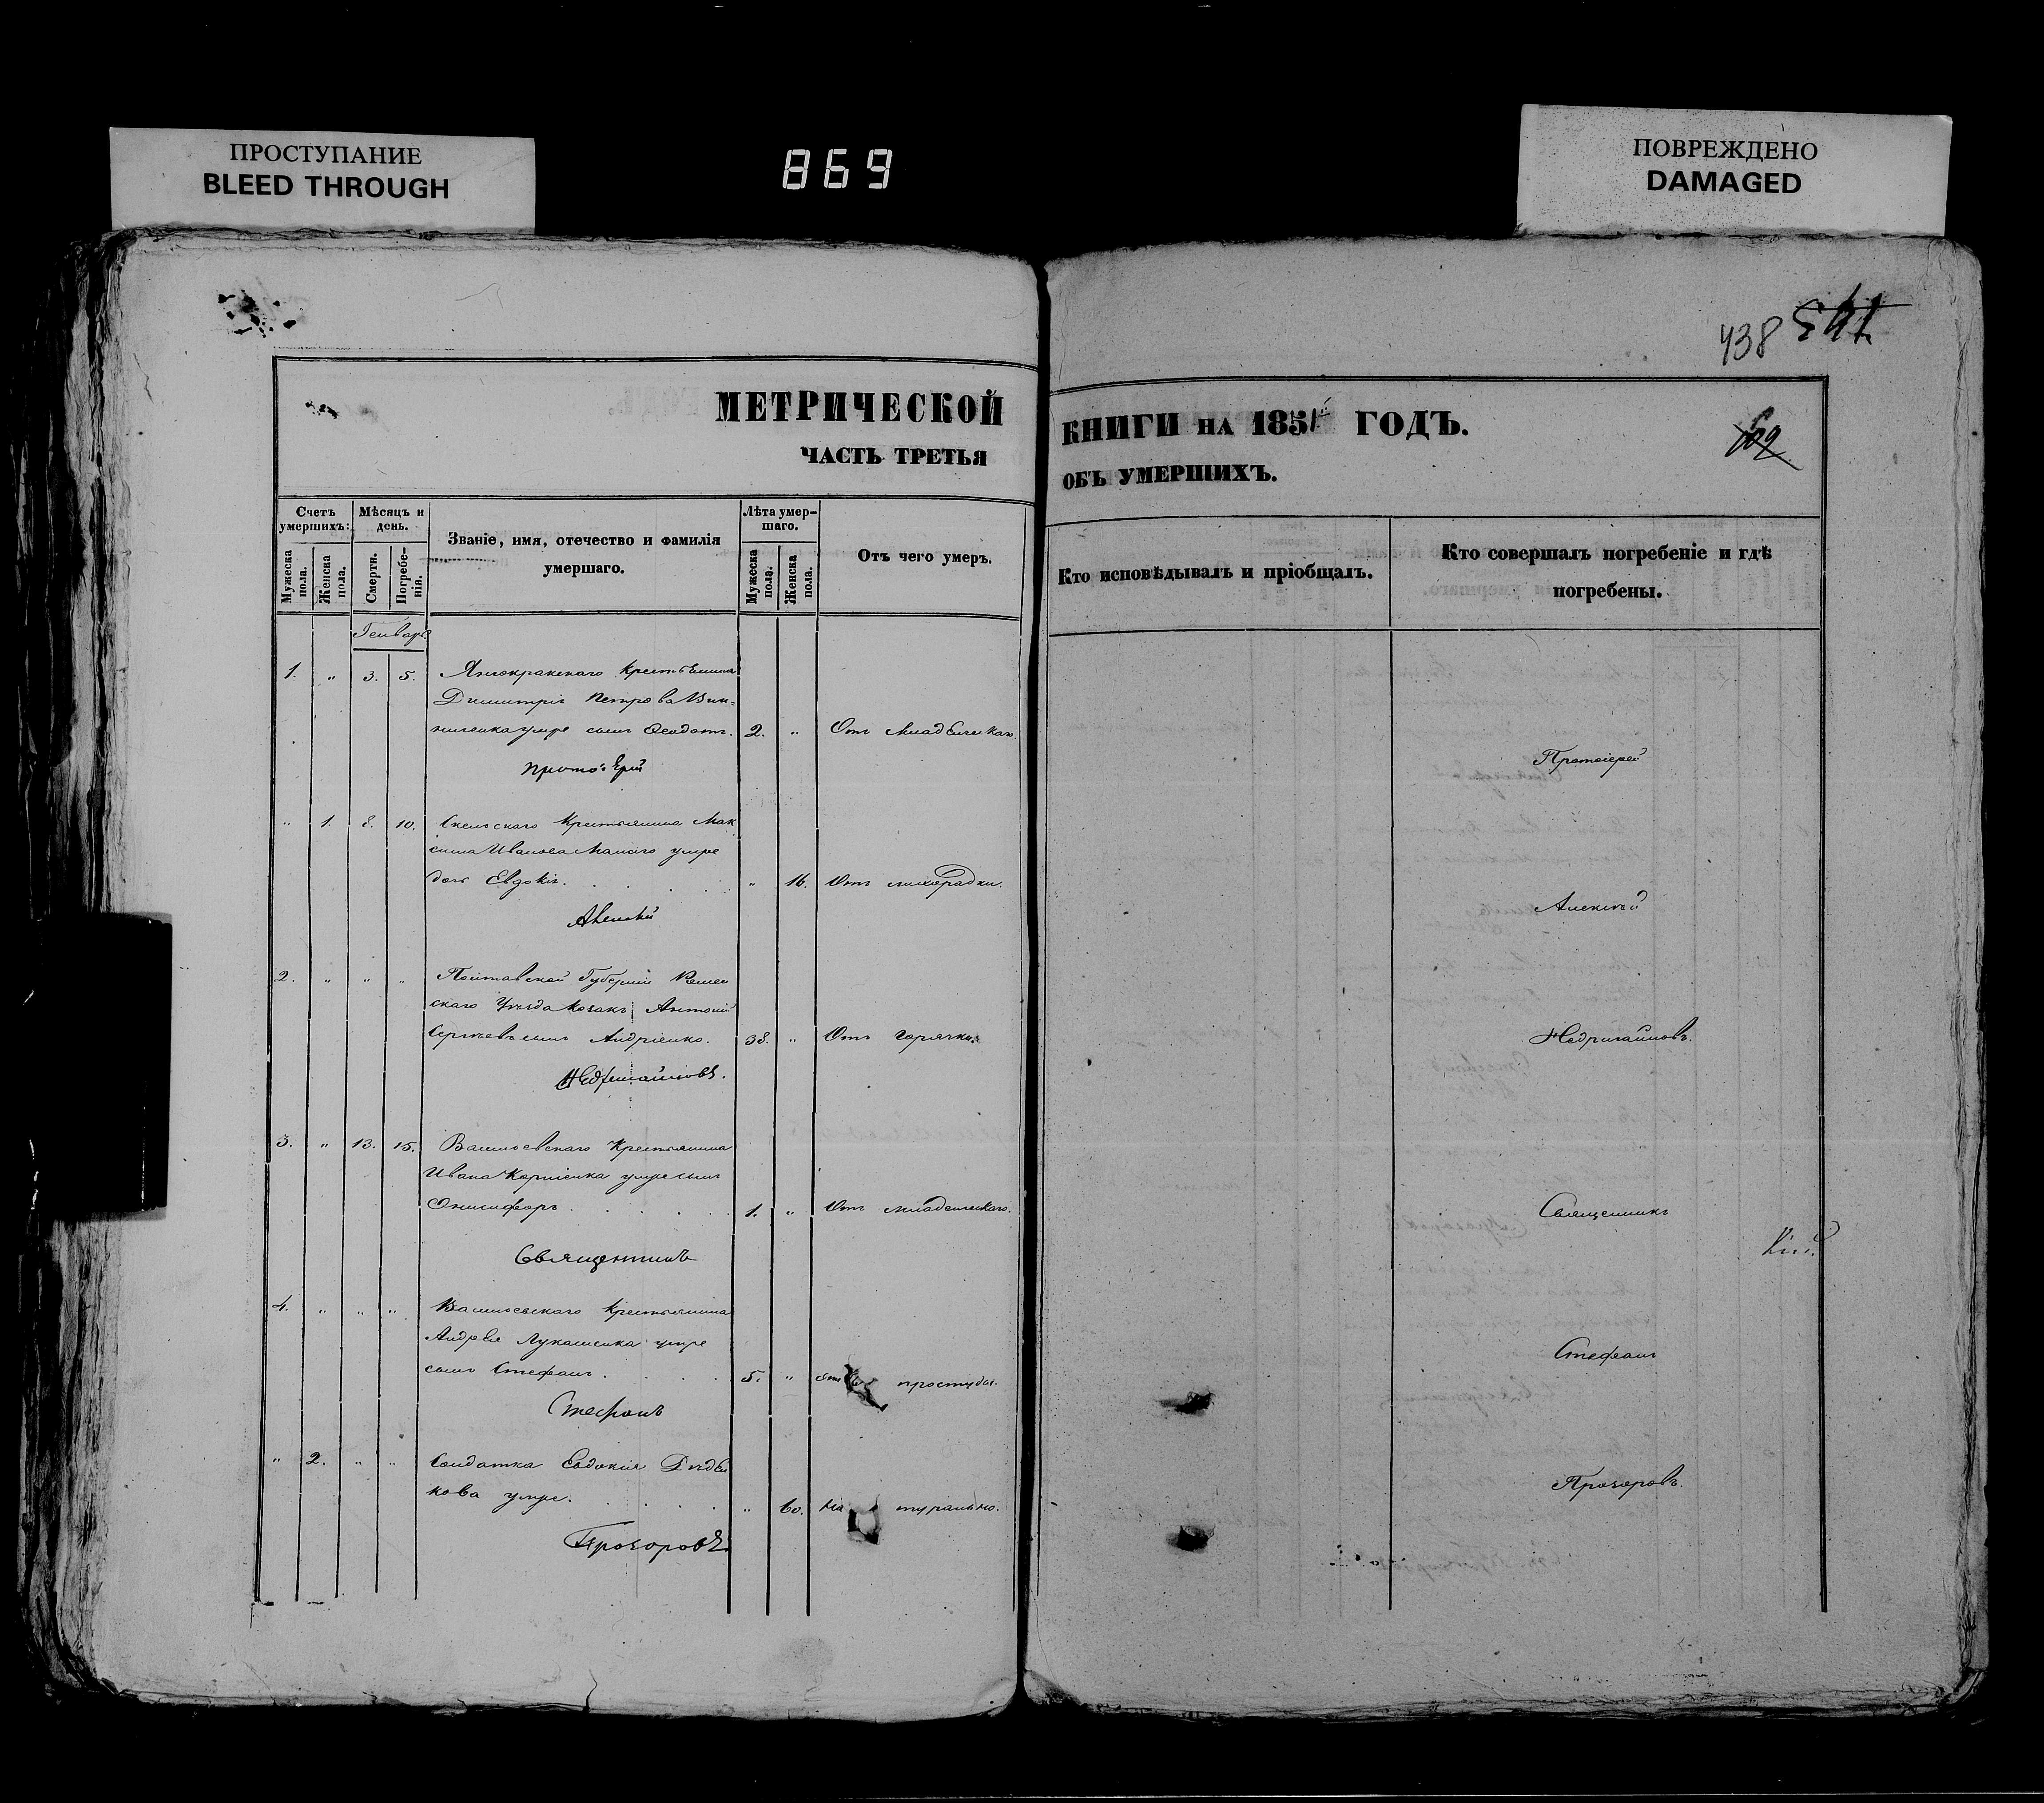 ПРОСТУПАНИЕ
BLEED THROUGH
869
ПОВРЕЖДЕНО
DAMAGED
438
МЕТРИЧЕСКОЙ
ЧАСТЬ ТРЕТЬЯ
КНИГИ НА 1851 ГОДЪ.
ОБЪ УМЕРШИХЪ.
Счетъ умершихъ:
Мужеска пола.
Женска пола.
Мѣсяцъ и день.
Смерти.
Погребенія.
Званіе, имя, отечество и фамилія
умершаго.
Лѣта умершаго.
Мужеска пола.
Женска пола.
Отъ чего умеръ.
Кто исповѣдывалъ и пріобщалъ.
Кто совершалъ погребеніе и гдѣ
погребены.
Генварь
1. " 3. 5. Крестьянина
Димитрія Петрова Вин=
ниченка умре сынъ Ѳеодотъ. 2. " Отъ младенческаго.
Протоіерей
Протоіерей
" 1. 8. 10. Скельскаго Крестьянина Мак
сима Иванова умре
дочь Евдокія. " 16. Отъ лихорадки.
Алексѣй
Алексѣй
2. " " " Полтавской Губерніи
скаго Уѣзда Козакъ Антоній
Сергѣевъ сынъ Андріенко. 38. " Отъ горячки.
Недригайловъ.
Недригайловъ.
3. " 13. 15. Крестьянина
Ивана Корніенка умре сынъ
Онисифоръ 1. " Отъ младенческаго.
Священникъ
Священникъ
4. " " " Крестьянина
Андрея Лукашенка умре
сынъ Стефанъ. 5. " отъ простуды.
Стефанъ
Стефанъ
" 2. " " Солдатка Евдокія
кова умре. " 60. натурально.
Прозоровъ.
Прозоровъ.